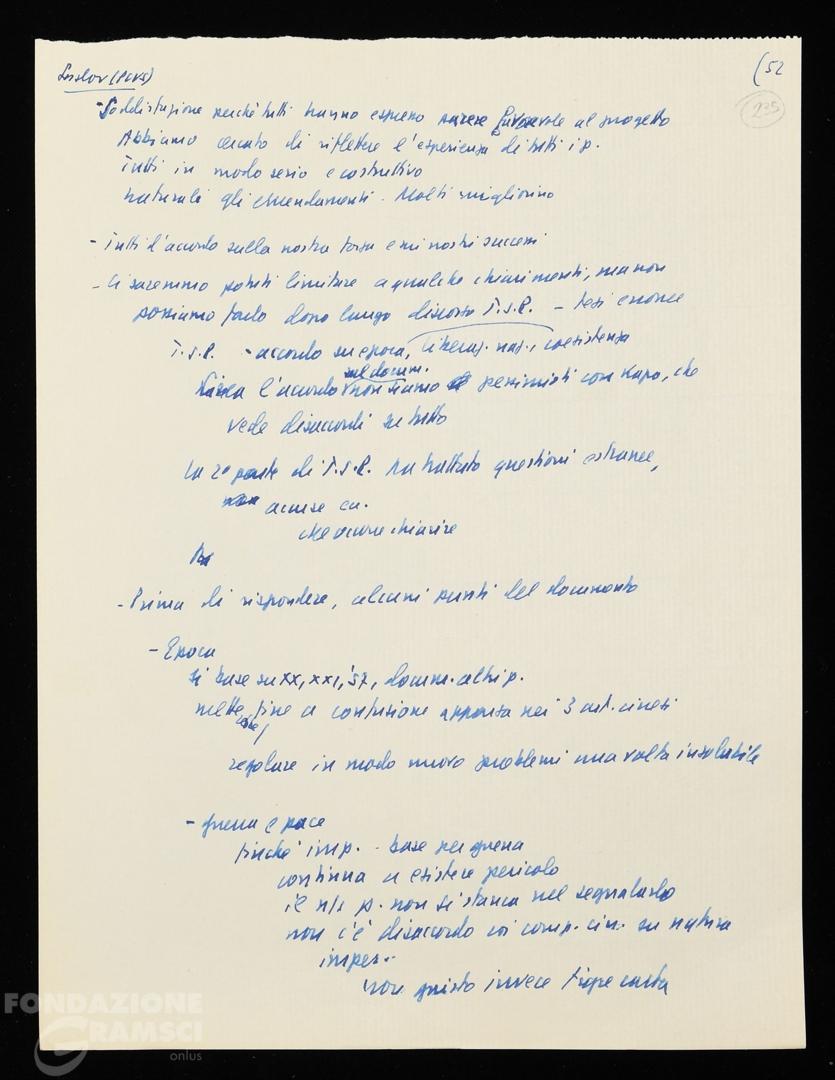 Suslov (PCUS)
(52
235
- Soddisfazione perché tutti hanno espresso parere favorevole al progetto
Abbiamo cercato di riflettere l'esperienza di tutti i p.
Tutti in modo serio e costruttivo
naturali gli emendamenti. Molti migliorino
- Tutti d'accordo sulla nostra forza e nei nostri successi
- Ci saremmo potuti limitare a qualche chiarimenti, ma non
possiamo farlo dopo lungo discorso T.S.P. - tesi erronee
T.S.P. - accordo su epoca, liberaz. naz., coesistenza
sul docum.
l'accordo non siamo pessimisti con Kapo, che
vede disaccordi su tutto
La 2ª parte di T.S.P. ha trattato questioni estranee,
accuse ca.
che occorre chiarire
- Prima di rispondere, alcuni punti del documento
- Epoca
Si base su XX, XXI, '57, docum. altri p.
mette fine a confusione apportata nei 3 art. cinesi
esse
regolare in modo nuovo problemi una volta insolubile
- guerra e pace
finché imp. - base per guerra
continua a esistere pericolo
il n/s p. non si stanca nel segnalarlo
non c'è disaccordo coi comp. cin. su natura
imper.
non giusto invece tigre carta
FONDAZIONE
GRAMSCI
onlus